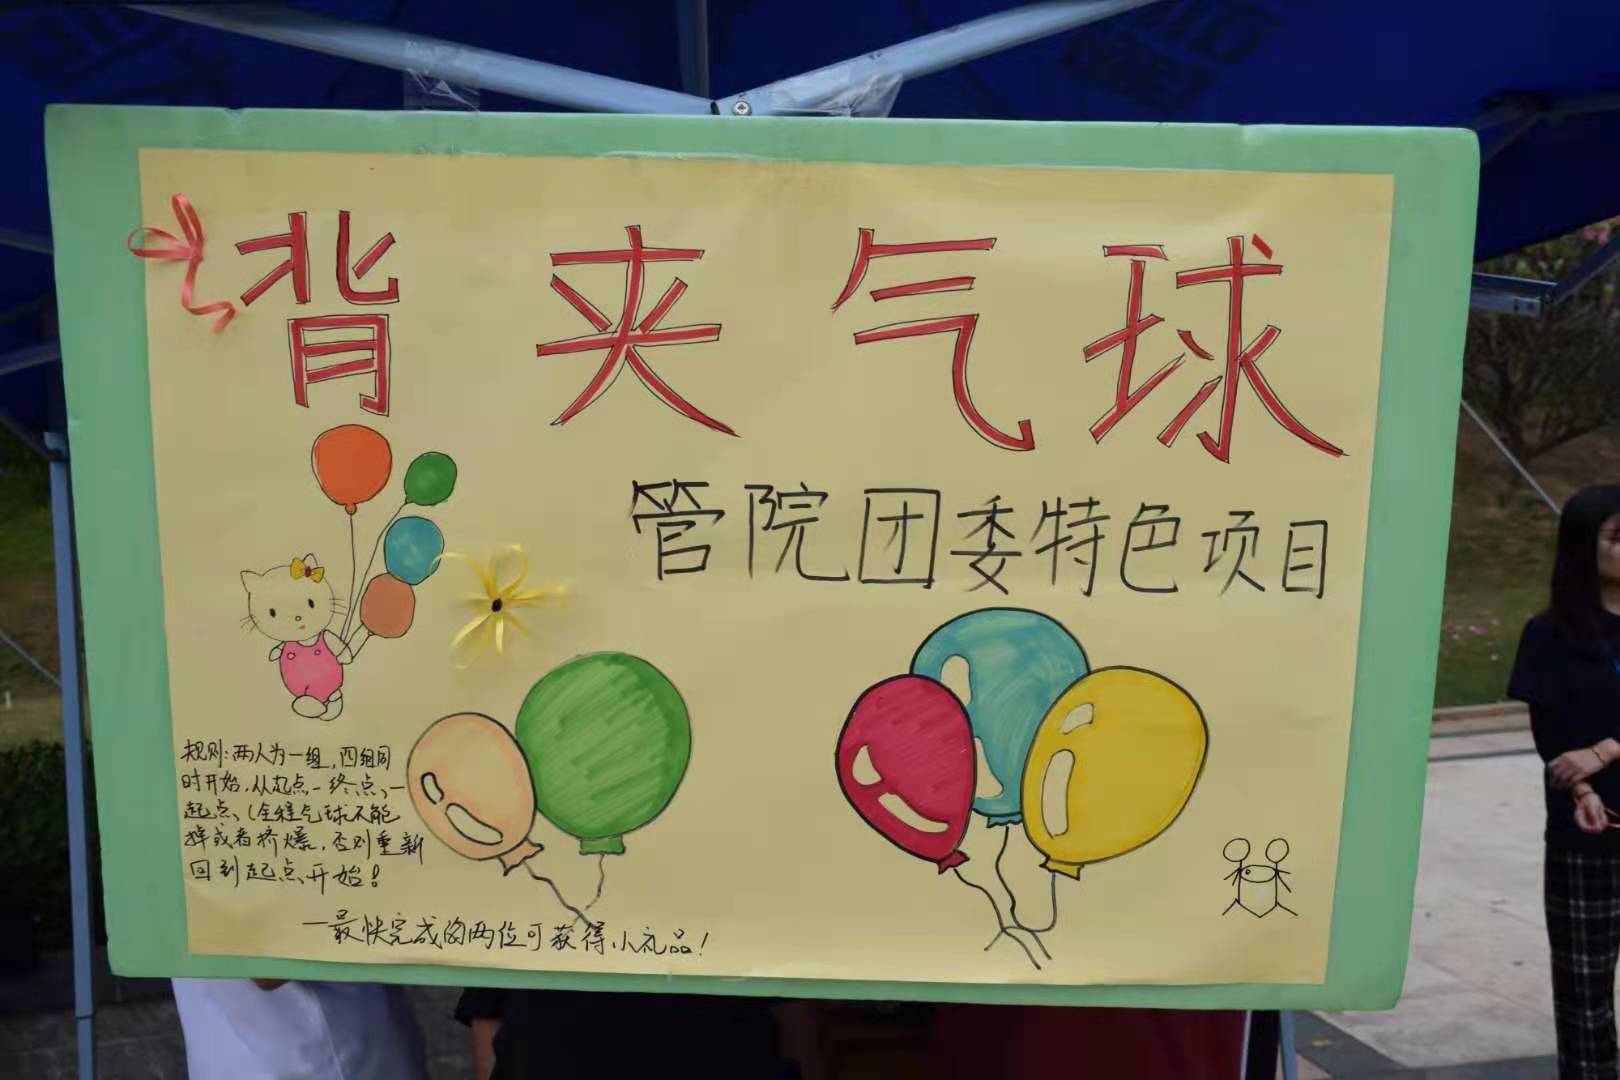 背夹气球
管院团委特色项目
规则:两人为一组,四组同
时开始,从起点-终点、-
起点、(全程气球不能
掉或者挤爆,否则重新
回到起点开始!
一最快完成的两位可获得小礼品!